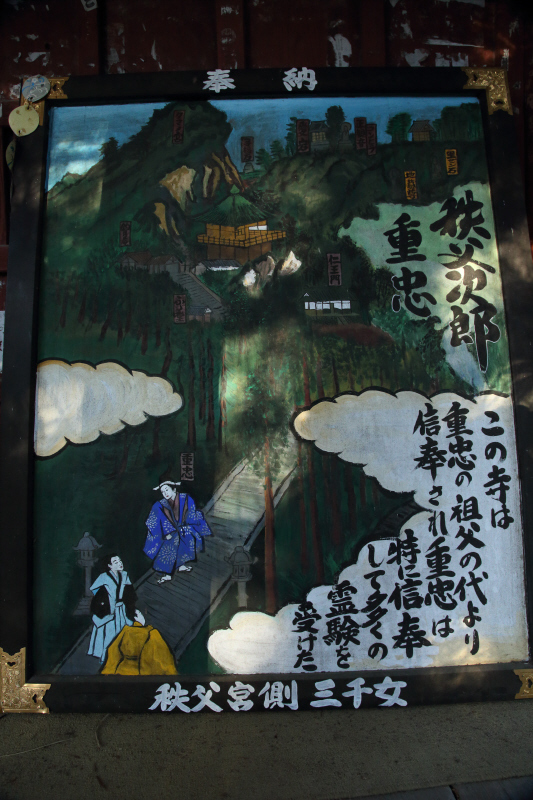 奉納
秩父次郎
重忠
この寺は
重忠の祖父の代より
信奉され重忠は
特に信奉
して多くの
霊験を
受けた
仁王門
秩父宮側 三千女